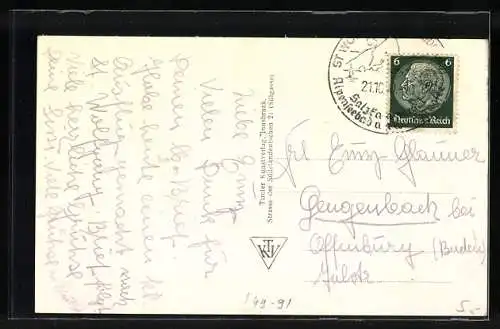 Liebe Emmy
Vielen Dank für
Deinen lb. Brief.
Habe heute einen kl.
Ausflug gemacht nach
St. Wolfgang. Brief folgt
Viele herzliche Grüsse
Deine
Tiroler Kunstverlag, Innsbruck,
Strasse der Sudetendeutschen 21 (Sillgasse)
TKI
ST. WO
21.10
Salzka
Alpenseebad
6 6
Deutsches Reich
Frl Emmy Glauner
Gengenbach bei
Offenburg (Baden)
149-91
5.-